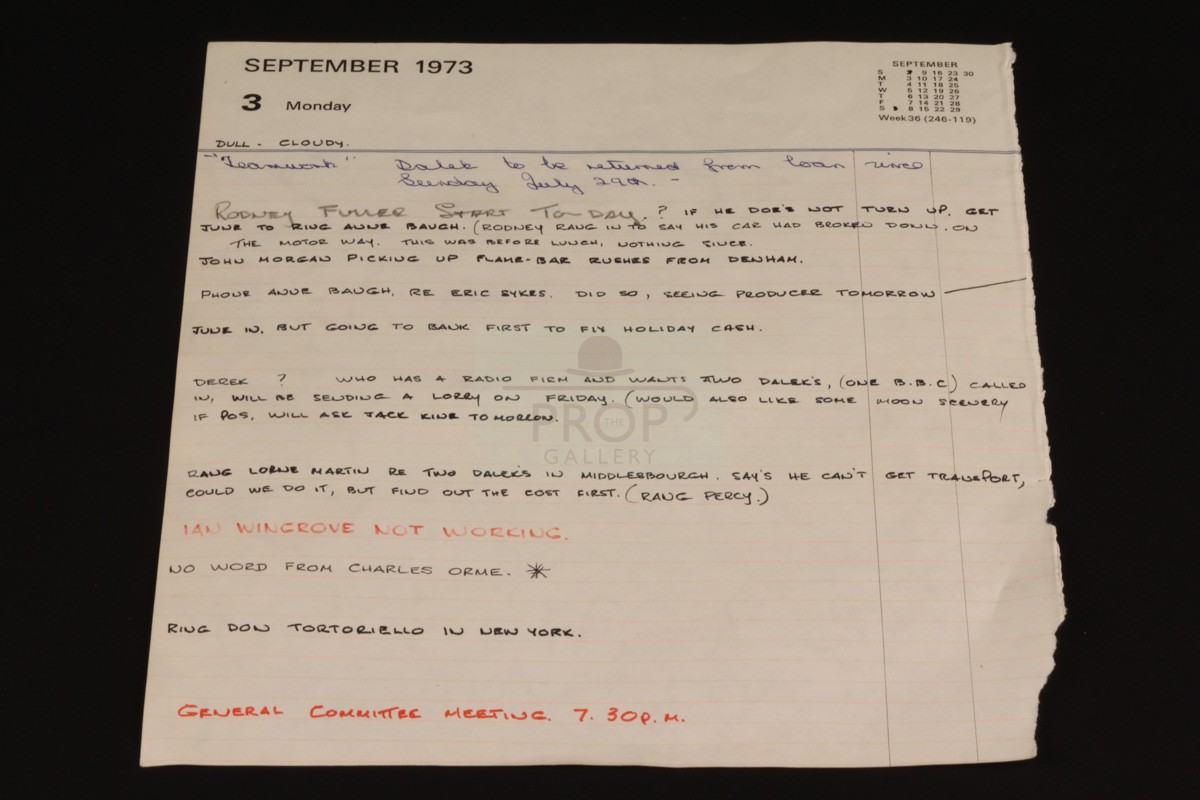 SEPTEMBER 1973
3 Monday
SEPTEMBER
S 2 9 16 23 30
M 3 10 17 24
T 4 11 18 25
W 5 12 19 26
T 6 13 20 27
F 7 14 21 28
S 1 8 15 22 29
Week 36 (246-119)
DULL - CLOUDY.
"Teamwork" Dalek to be returned from loan since
Sunday July 29th. -
RODNEY FULLER START TO-DAY. ? IF HE DOE'S NOT TURN UP. GET
JUNE TO RING ANNE BAUGH. (RODNEY RANG IN TO SAY HIS CAR HAD BROKEN DOWN. ON
THE MOTOR WAY. THIS WAS BEFORE LUNCH, NOTHING SINCE.
JOHN MORGAN PICKING UP FLAME-BAR RUSHES FROM DENHAM.
PHONE ANNE BAUGH, RE ERIC SYKES. DID SO, SEEING PRODUCER TOMORROW
JUNE IN, BUT GOING TO BANK FIRST TO FIX HOLIDAY CASH.
DEREK ? WHO HAS A RADIO FIRM AND WANTS TWO DALEK'S, (ONE B.B.C) CALLED
IN, WILL BE SENDING A LORRY ON FRIDAY. (WOULD ALSO LIKE SOME MOON SCENERY
IF POS. WILL ASK JACK KINE TOMORROW.
THE PROP GALLERY
RANG LORNE MARTIN RE TWO DALEK'S IN MIDDLESBOURGH. SAY'S HE CAN'T GET TRANSPORT,
COULD WE DO IT, BUT FIND OUT THE COST FIRST. (RANG PERCY.)
IAN WINGROVE NOT WORKING.
NO WORD FROM CHARLES ORME. *
RING DON TORTORIELLO IN NEW YORK.
GENERAL COMMITTEE MEETING. 7.30P.M.